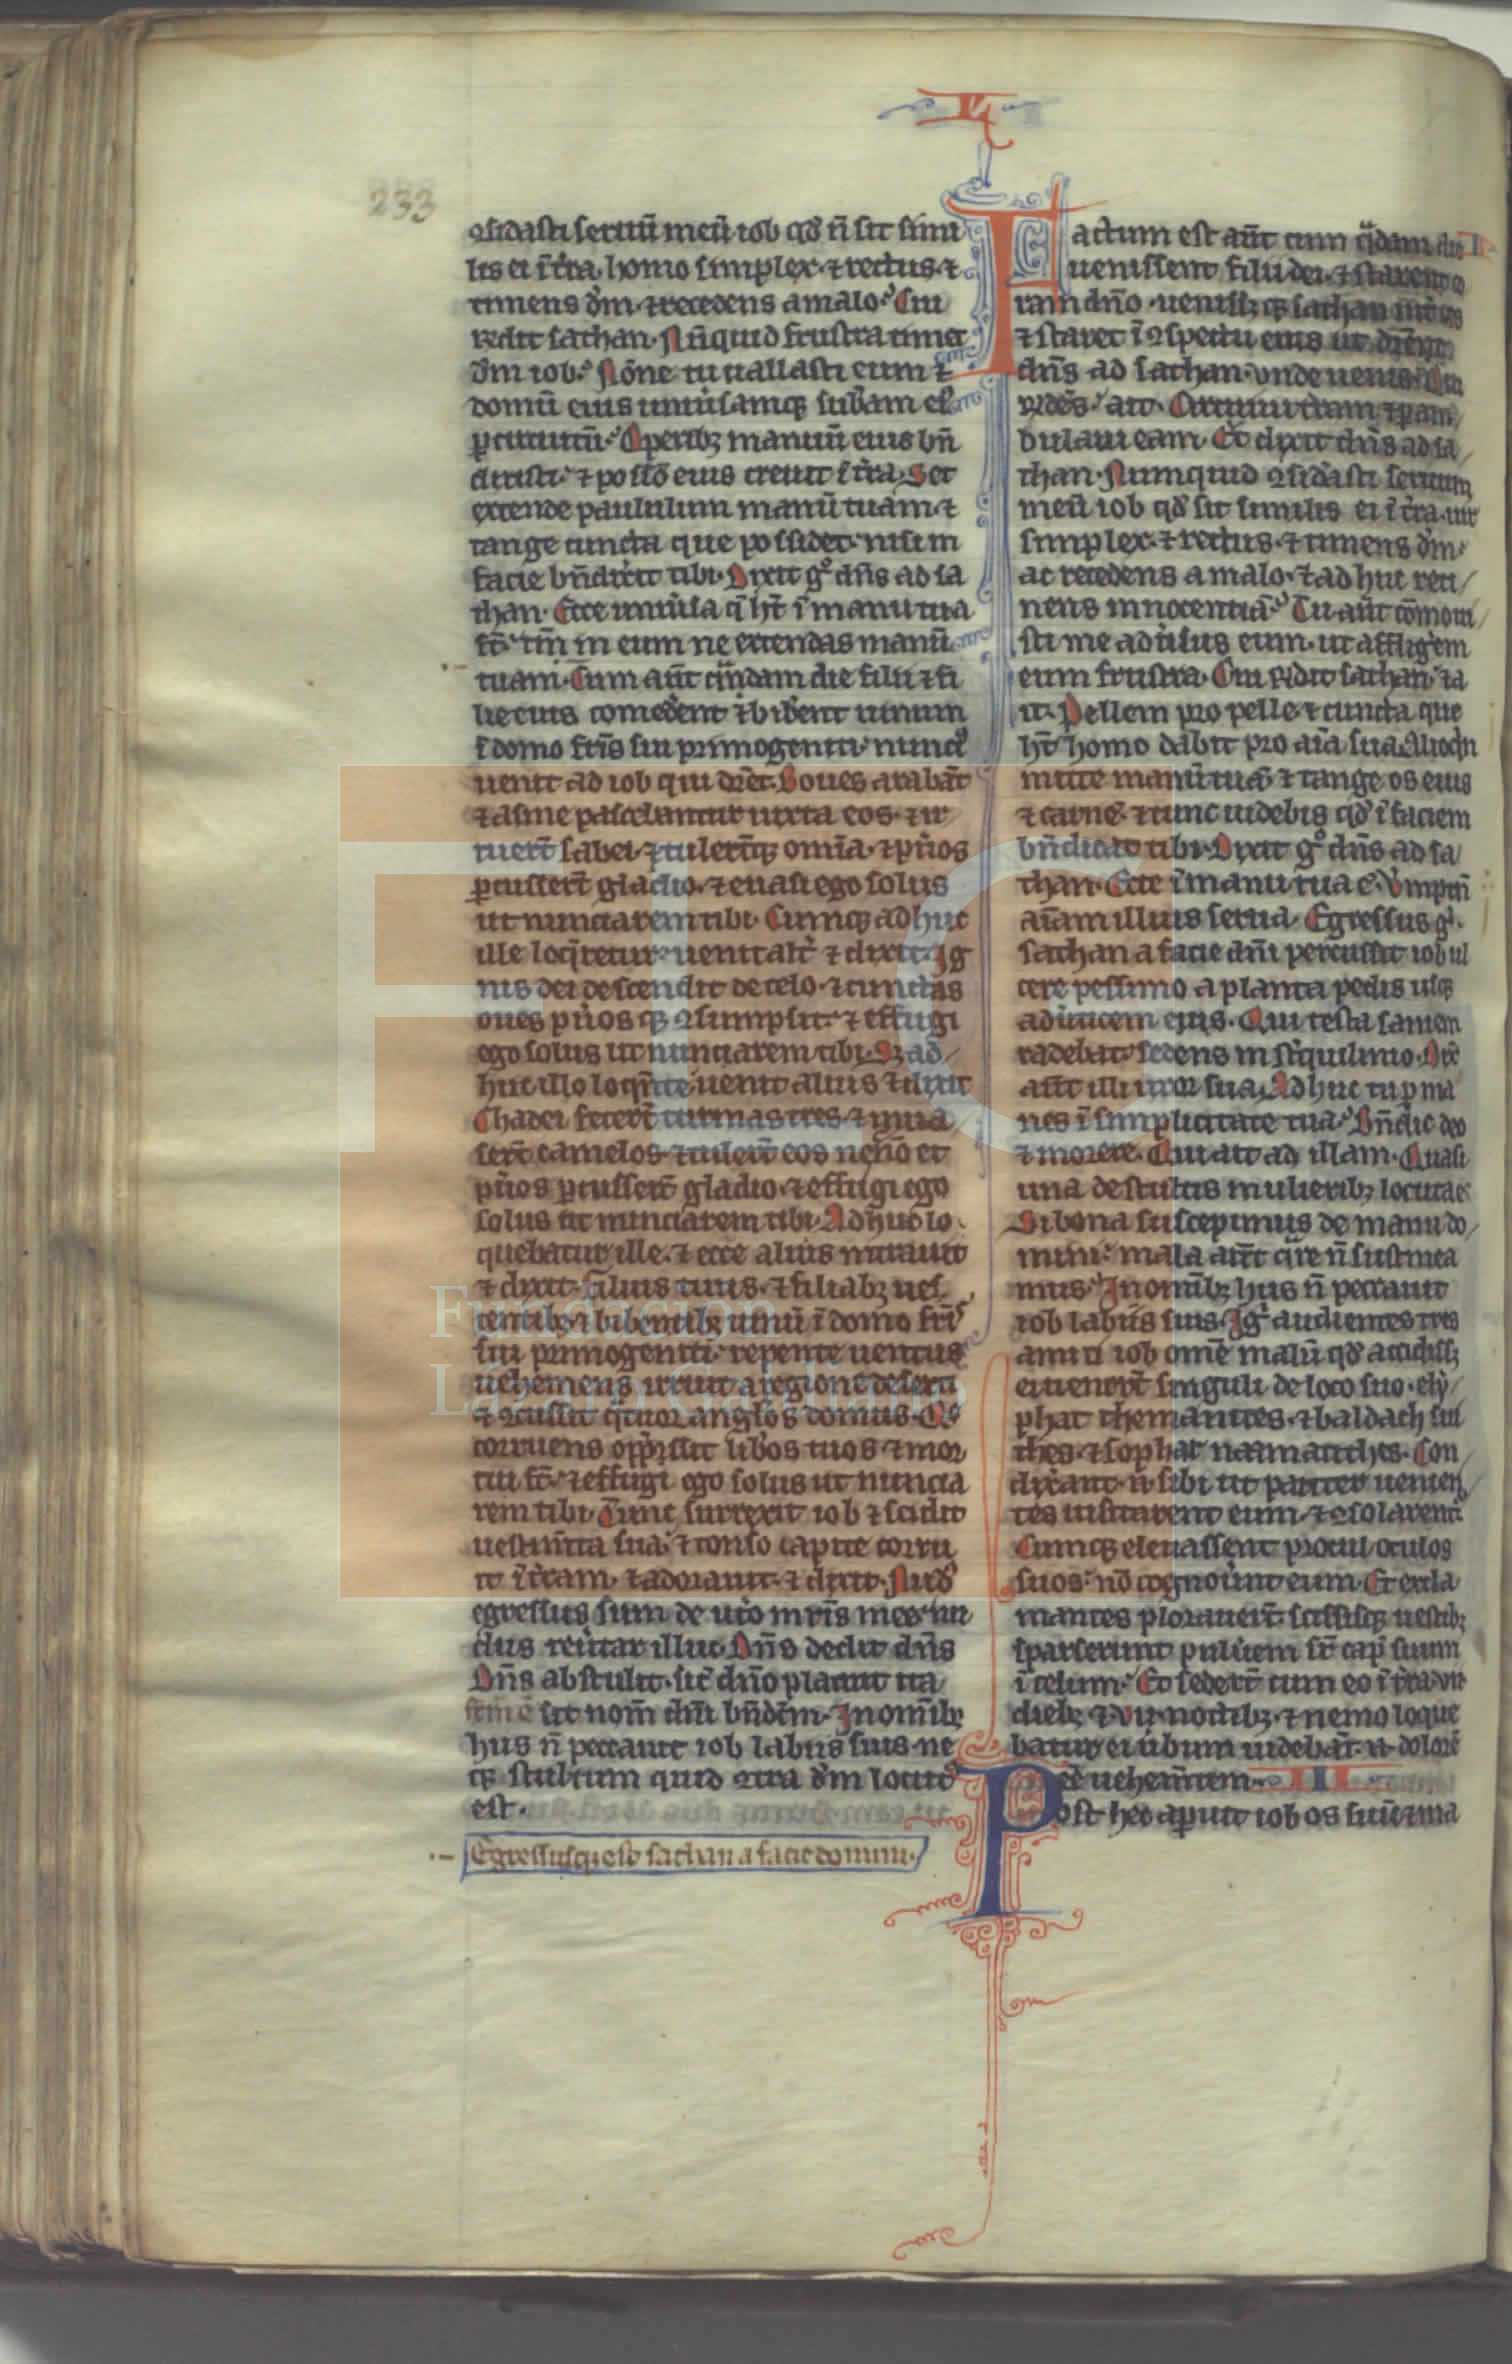 233
ꝯsidasti seruū meū iob qd̛ n̄ sit simi
lis ei ī t̛ra. homo simplex ⁊ rectus ⁊
timens dm̄ ⁊ recedens a malo. Cui
redit sathan. Nūquid frustra timet
dm̄ iob. Nōne tu uallasti eum ⁊
domū eius uniưsamqꝫ sub̛am
ꝑ circuitū. Operibꝫ manuū eius bn̄
dixisti. ⁊ possō eius creuit ī t̛ra. Set
extende paululum manū tuam ⁊
tange cuncta que possidet. nisi in
facie bn̄dixit tibi. Dixit gͦ dn̄s ad sa
than. Ecce uniưsa q̄ ht̄ ī manu tua
st̄. tm̄ in eum ne extendas manū
tuam. Cum aūt q̄dam die filii ⁊ fi
lie eius comed̛ent ⁊ bib̛ent uinum
ī domo fr̄is sui primogeniti. nunci᷒
uenit ad iob qui dic̛et. Boues arabāt
⁊ asine pascebantur iuxta eos ⁊ ir
ruert̄ sabei. ⁊ tulert̄qꝫ omīa. ⁊ pưos
ꝑcussert̄ gladio. ⁊ euasi ego solus
ut nunciarem tibi. Cumqꝫ adhuc
ille loq̄retur. uenit alt̛ ⁊ dixit. Ig
nis dei descendit de celo. ⁊ cunctas
oues pưos qꝫ ꝯsumpsit. ⁊ effugi
ego solus ut nunciarem tibi. Sꝫ ad
huc illo loq̄nte uenit alius ⁊ dixit
Chadei fecert̄ turmas tres ⁊ inua
sert̄ camelos ⁊ tulert̄ eos necn̄o et
pưos ꝑcussert̄ gladio. ⁊ effugi ego
solus ut nunciarem tibi. Adhuc lo
quebatur ille. ⁊ ecce alius intrauit
⁊ dixit. filiis tuis ⁊ filiabꝫ ues
centibꝫ ⁊ bibentibꝫ uinū ī domo fr̄is
sui primogeniti. repente uentus
uehemens irruit a regione deserti
⁊ ꝯcussit q̄tuor anglơs domus. Q̄
corruens opp̄ssit lib̛os tuos ⁊ mor
tui st̄. ⁊ effugi ego solus ut nuncia
rem tibi. Tunc surrexit iob ⁊ scidit
uestim̄ta sua. ⁊ tonso capite corru
it ī t̛ram. ⁊ adorauit. ⁊ dixit. Nud᷒
egressus sum de ut̛o mr̄is mee. nu
dus reưtar illuc. Dn̄s dedit dn̄s
Dn̄s abstulit. sic̄ dn̄o placuit ita
sit nom̄ dn̄i bn̄dc̄m. In om̄ibꝫ
hiis n̄ peccauit iob labiis suis ne
qꝫ stultum quid ꝯtra dm̄ locut᷒
est.
Egressusqꝫ est sathan a facie domini.
Factum est aūt cum q̄dam die II
uenissent filii dei. ⁊ starent co
ram dn̄o. uenissꝫ qꝫ sathan int̛ eos
⁊ staret ī ꝯspectu eius ut dic̛et
dn̄s ad sathan. unde uenis. Qui
rn̄dēs. ait. Circuiui t̛ram ⁊ ꝑam
bulaui eam. Et dixit dn̄s ad sa
than. Numquid ꝯsid̛asti seruum
meū iob qd̛ sit similis ei ī t̛ra. uir
simplex. ⁊ rectus. ⁊ timens dm̄.
ac recedens a malo. ⁊ adhuc reti
nens innocentiā. Tu aūt cōmoui
sti me adưsus eum. ut affligem
eum frustra. Cui rn̄dit sathan. ⁊ a
it. Pellem pro pelle ⁊ cuncta que
ht̄ homo dabit pro aīa sua. Alioqn̄
mitte manū tuā. ⁊ tange os eius
⁊ carnē. ⁊ tunc uidebis qd̛ ī faciem
bn̄dicat tibi. Dixit gͦ dn̄s ad sa
than. Ecce ī manu tua ē. Ưmptn̄
aīam illius serua. Egressus gͥ.
sathan a facie dn̄i percussit iob ul
cere pessimo a planta pedis usqꝫ
ad ưticem eius. Qui testa saniem
radebat. sedens in st̛quilinio. Dix̄
aūt illi uxor sua. Adhuc tu ꝑma
nes ī simplicitate tua. Bn̄dic deo
⁊ morere. Qui ait ad illam. Quasi
una de stultis mulieribꝫ locuta es
Si bona suscepimus de manu do
mini. mala aūt q̄re n̄ sustinea
mus. In om̄ibꝫ hiis n̄ peccauit
iob labiis suis. Igͥ audientes tres
amici iob omē malū qd̛ accidissꝫ
ei uenert̄ singuli de loco suo. ely
phat themanites. ⁊ baldach sui
thes. ⁊ sophar naamathes. Con
dix̛ant. n̄. sibi ut pariter uenien
tes uisitarent eum. ⁊ ꝯsolarent̄
Cumqꝫ eleuassent procul oculos
suos. nō cognoưunt eum. Et excla
mantes plorauert̄. scissisqꝫ uestibꝫ
sparserunt puluem sr̄ cap̄ suum
ī celum. Et sedert̄ cum eo ī t̛ra. VII
diebꝫ ⁊ VII. noctibꝫ. ⁊ nemo loque
batur ei ưbum uidebāt. n̄. dolorē
eē uehem̄tem. III
Post hec aꝑuit iob os suū ⁊ ma
FLG
Fundación
Lázaro Galdiano